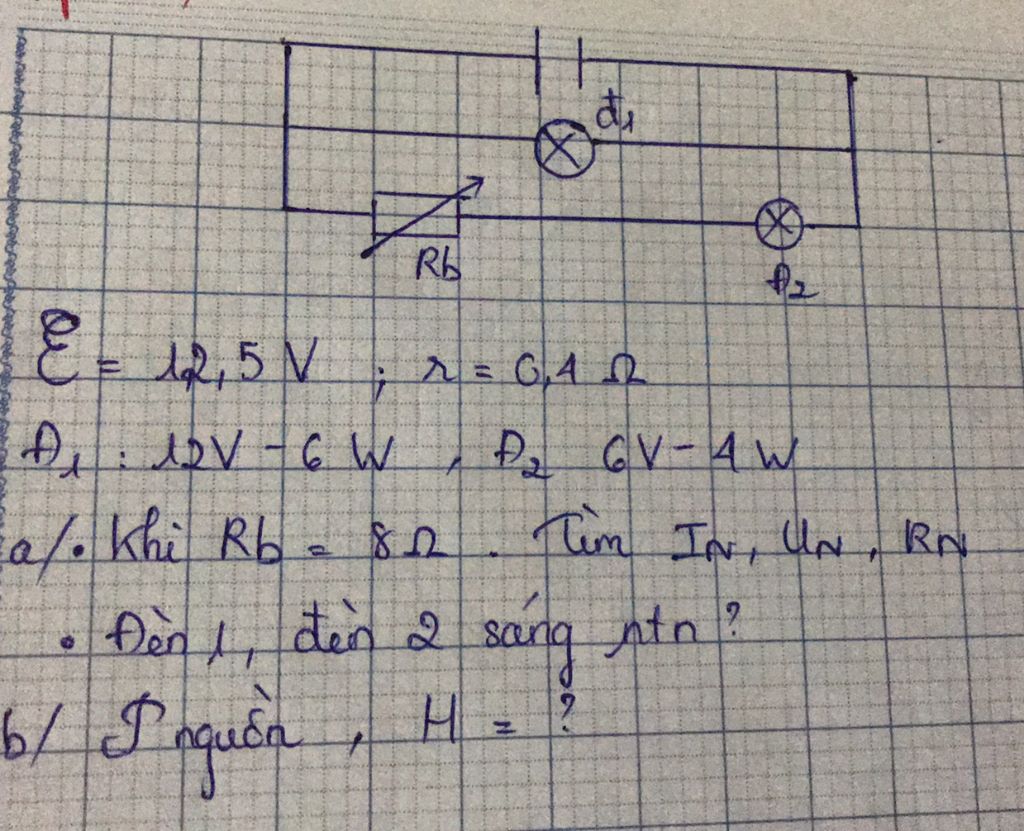 đ₁
Rb
Đ₂
ℰ = 12,5 V ; r = 0,4 Ω
Đ₁ : 12V - 6 W , Đ₂ 6V - 4 W
a/ • Khi Rb = 8 Ω . Tìm I_N, U_N, R_N
• Đèn 1, đèn 2 sáng ntn ?
b/ P nguồn , H = ?